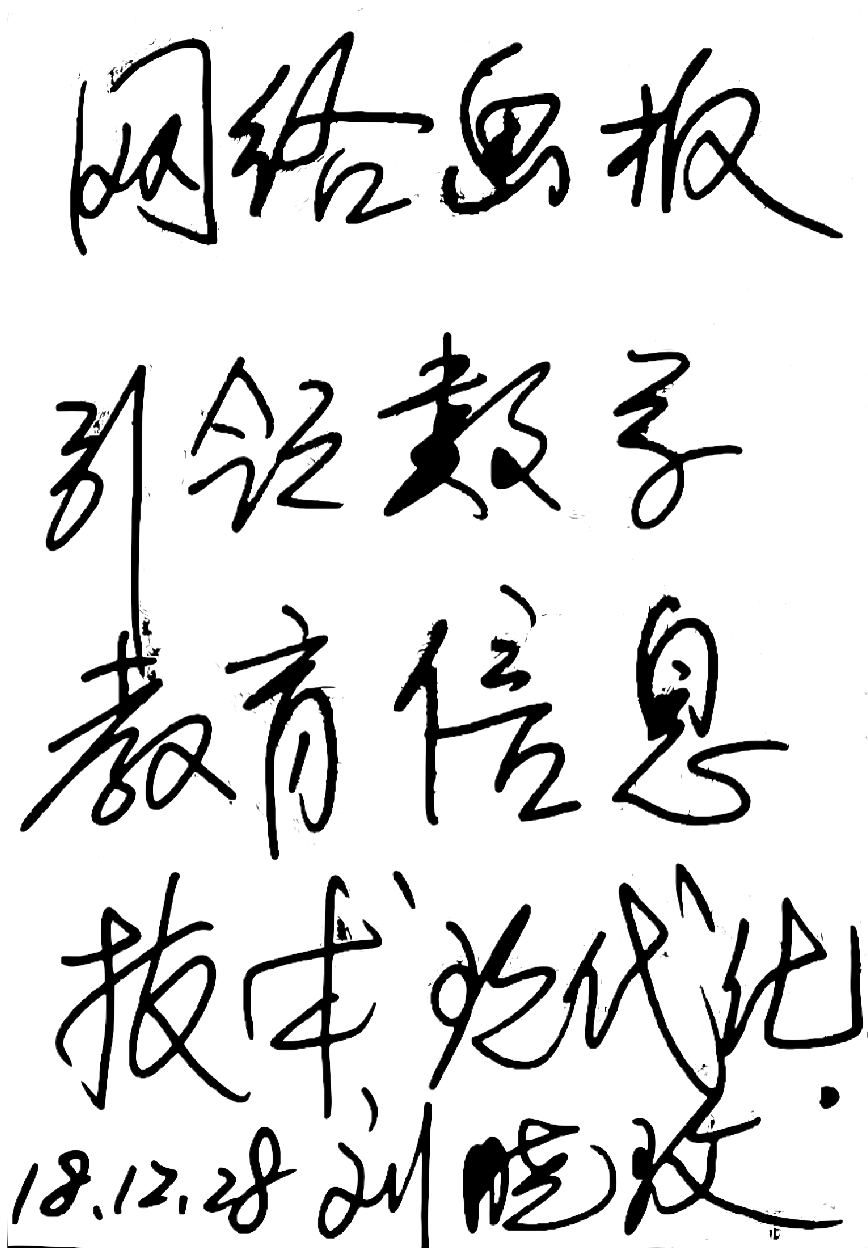 网络画板
引领数学
教育信息
技术现代化.
18.12.28 刘晓玫